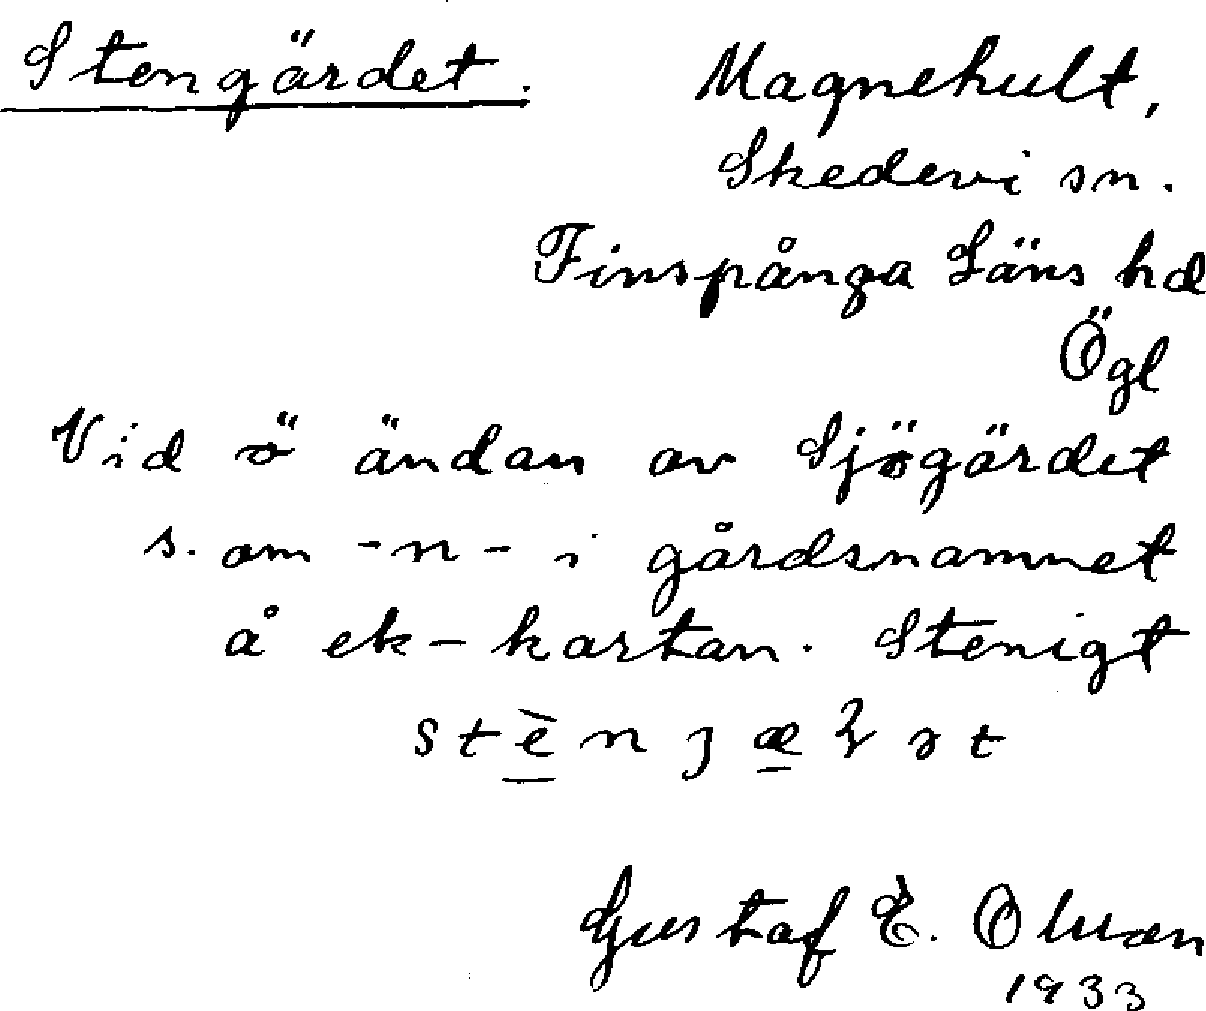 Stengärdet. Magnehult,
Skedevi sn.
Finspånga Läns hd
Ögl
Vid ö ändan av Sjögärdet
s. om -n- i gårdsnamnet
å ek-kartan. Stenigt
stènjæɽət
Gustaf E.
1933